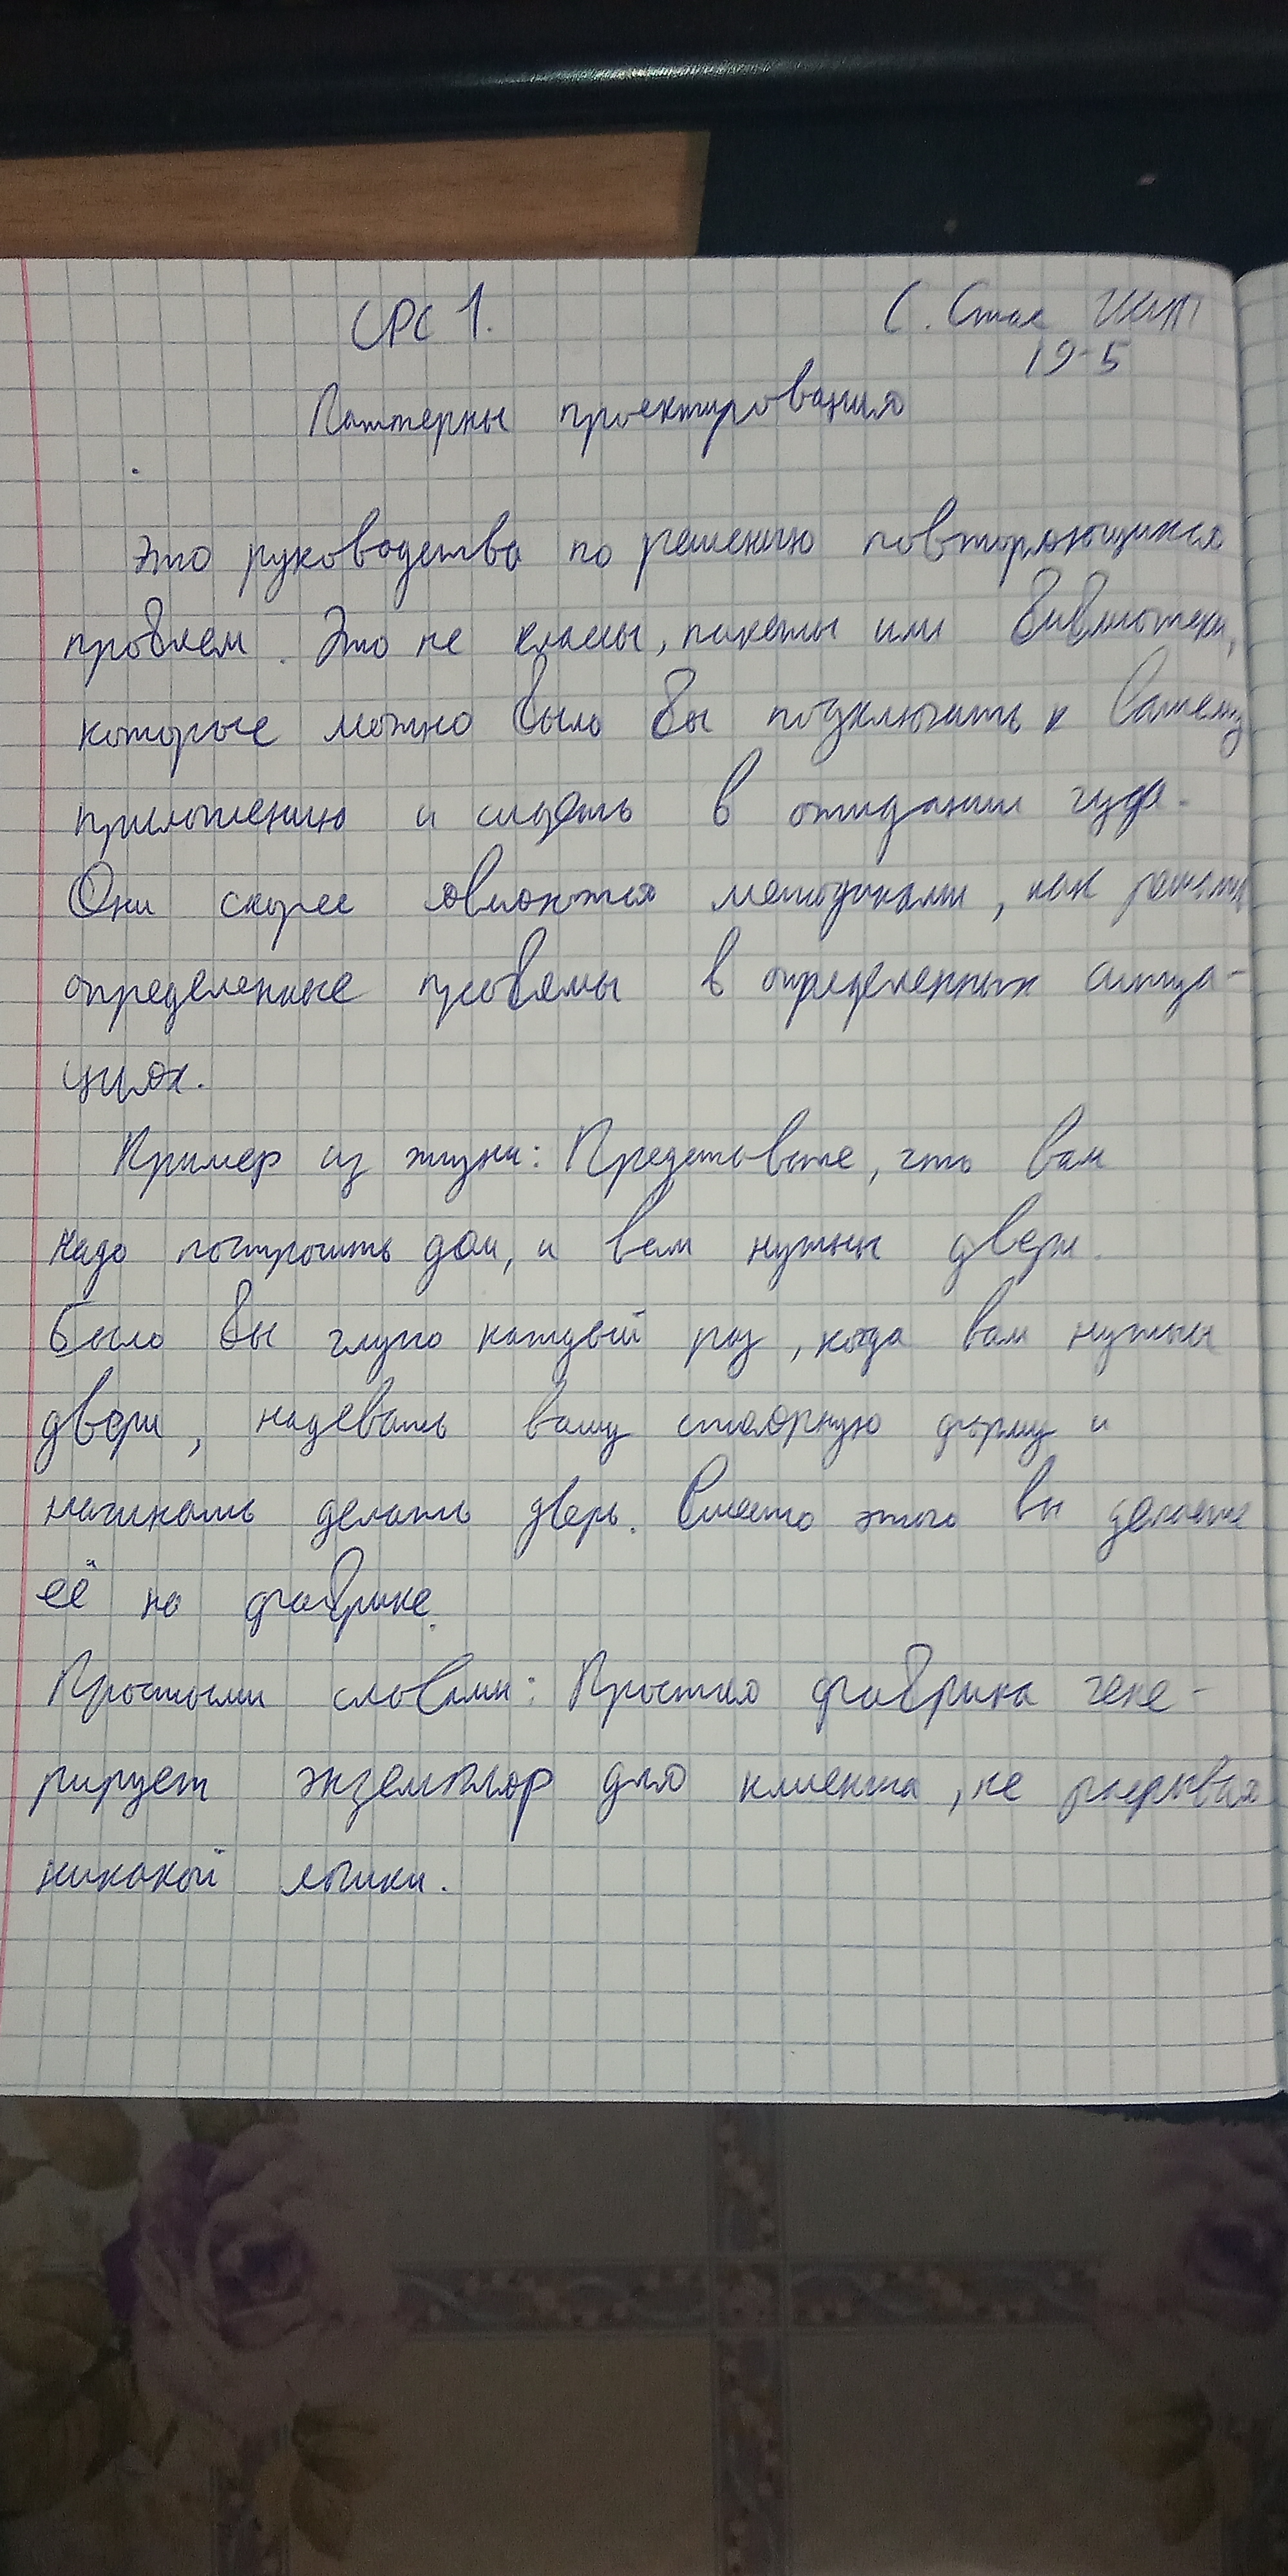 СРС 1.
С. Стас
19-5
Паттерны проектирования
Это руководства по решению повторяющихся
проблем. Это не классы, пакеты или библиотеки,
которые можно было бы подключить к вашему
приложению и сидеть в ожидании чуда.
Они скорее являются методиками, как решать
определенные проблемы в определенных ситуа-
циях.
Пример из жизни: Представьте, что вам
надо построить дом, и вам нужны двери.
Было бы глупо каждый раз, когда вам нужны
двери, надевать вашу столярную форму и
начинать делать дверь. Вместо этого вы делаете
её на фабрике.
Простыми словами: Простая фабрика гене-
рирует экземпляр для клиента, не раскрывая
никакой логики.